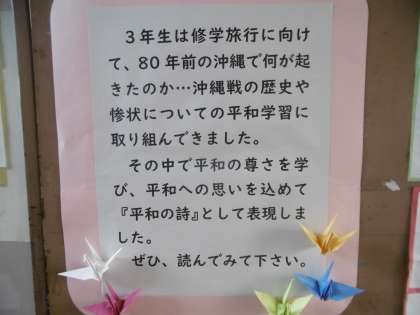 ３年生は修学旅行に向け
て、80年前の沖縄で何が起
きたのか…沖縄戦の歴史や
惨状についての平和学習に
取り組んできました。
その中で平和の尊さを学
び、平和への思いを込めて
『平和の詩』として表現しま
した。
ぜひ、読んでみて下さい。